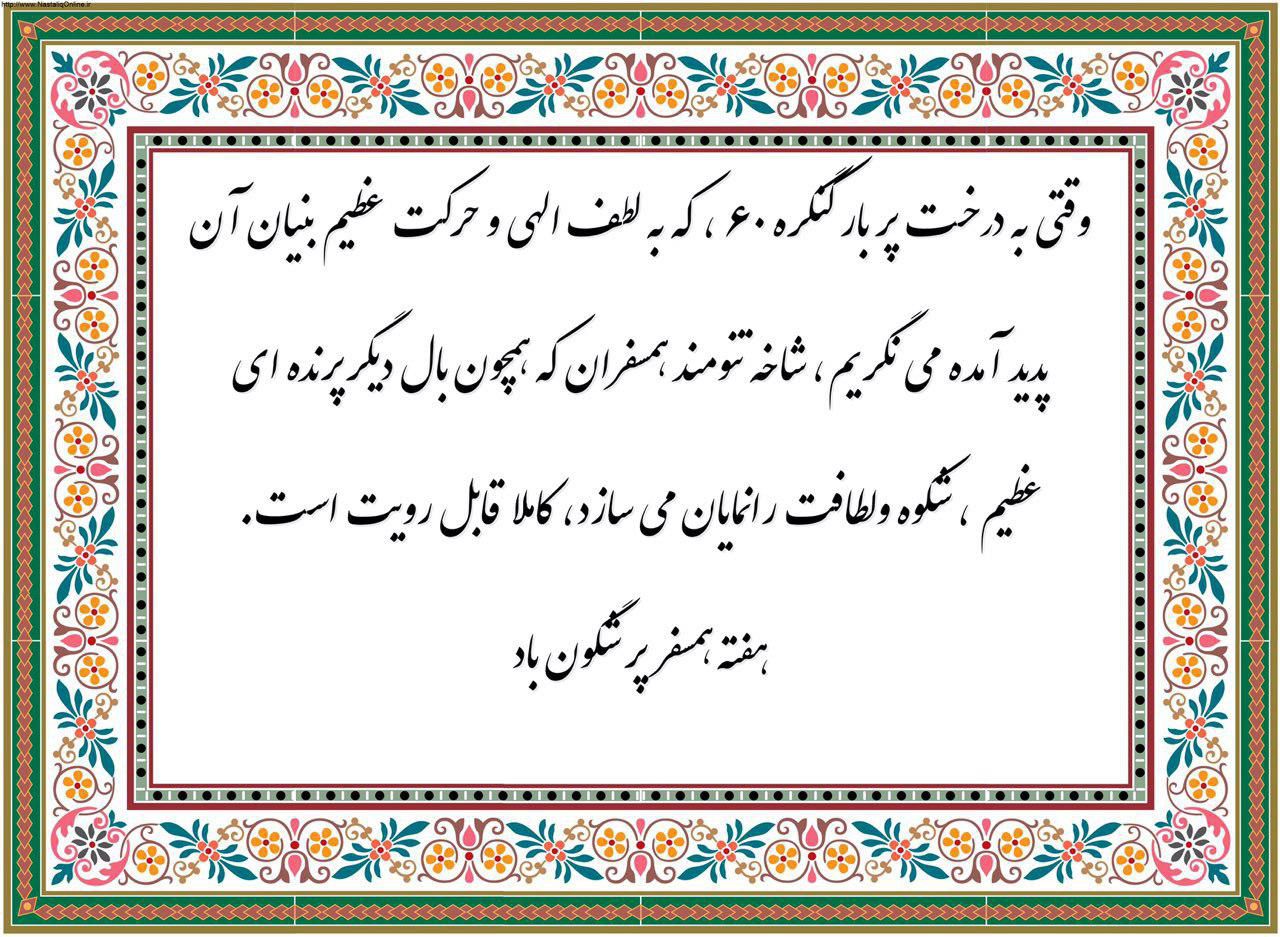 http://www.NastaliqOnline.ir
وقتی به درخت پر بار کنگره ۶۰ ، که به لطف الهی و حرکت عظیم بنیان آن
پدید آمده می نگریم ، شاخه تنومند همسفران که همچون بال دیگر پرنده ای
عظیم ، شکوه ولطافت رانمایان می سازد، کاملا قابل رویت است.
هفته همسفر پر شگون باد